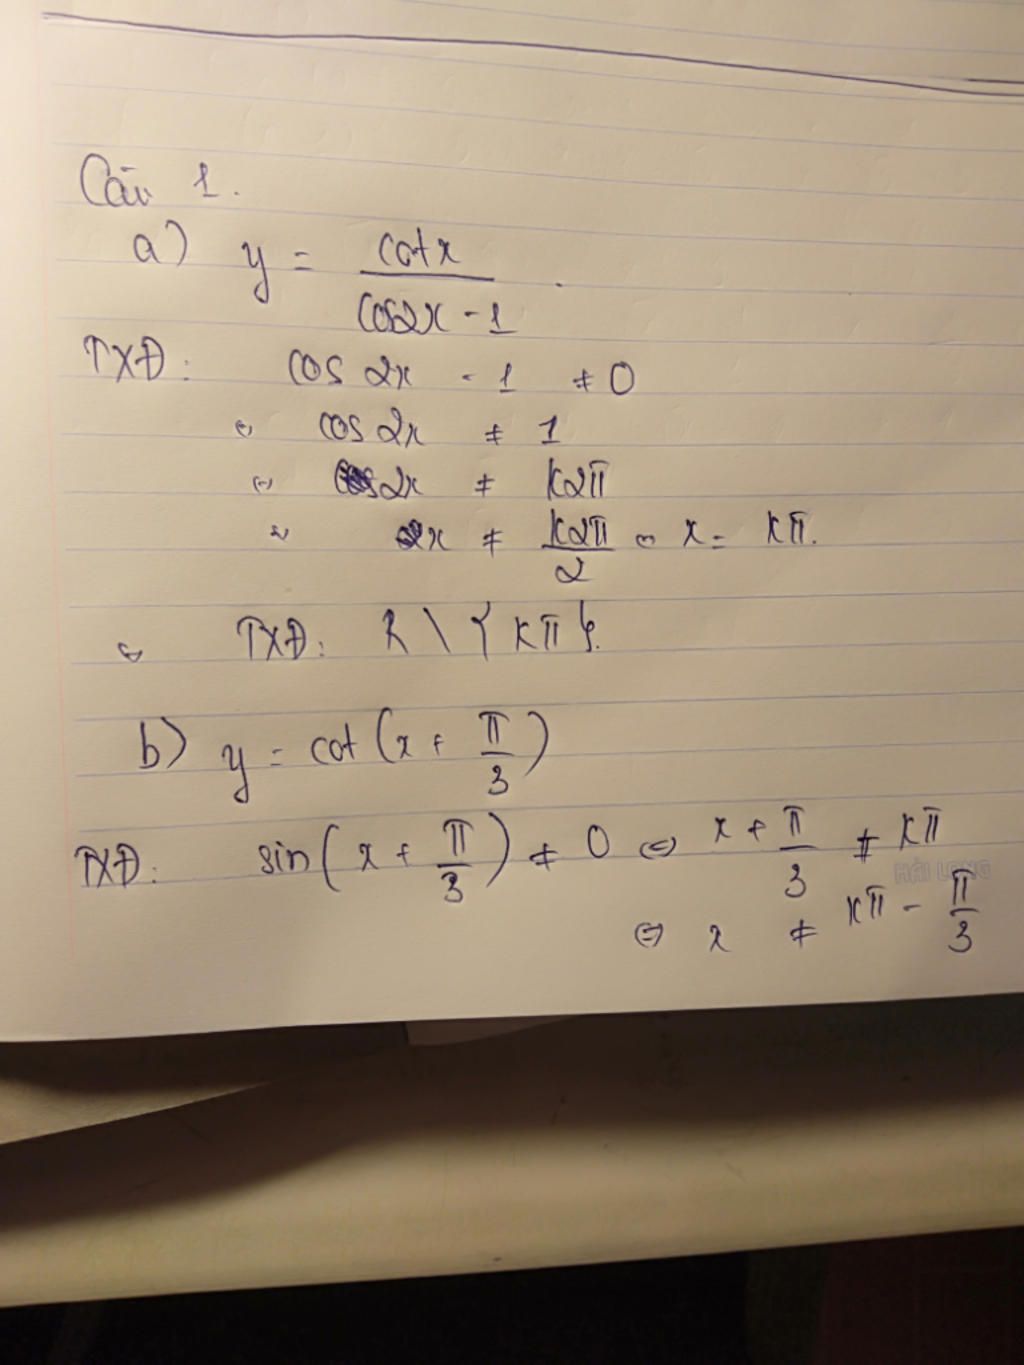 Câu 1.
a) y = cotx / cos2x - 1 .
TXĐ: cos 2x - 1 ≠ 0
⇔ cos 2x ≠ 1
⇔ 2x ≠ k2π
⇔ x ≠ k2π / 2 ⇔ x = kπ.
⇔ TXĐ: R \ { kπ }.
b) y = cot (x + π/3)
TXĐ: sin( x + π/3 ) ≠ 0 ⇔ x + π/3 ≠ kπ
HẢI LONG
⇔ x ≠ kπ - π/3